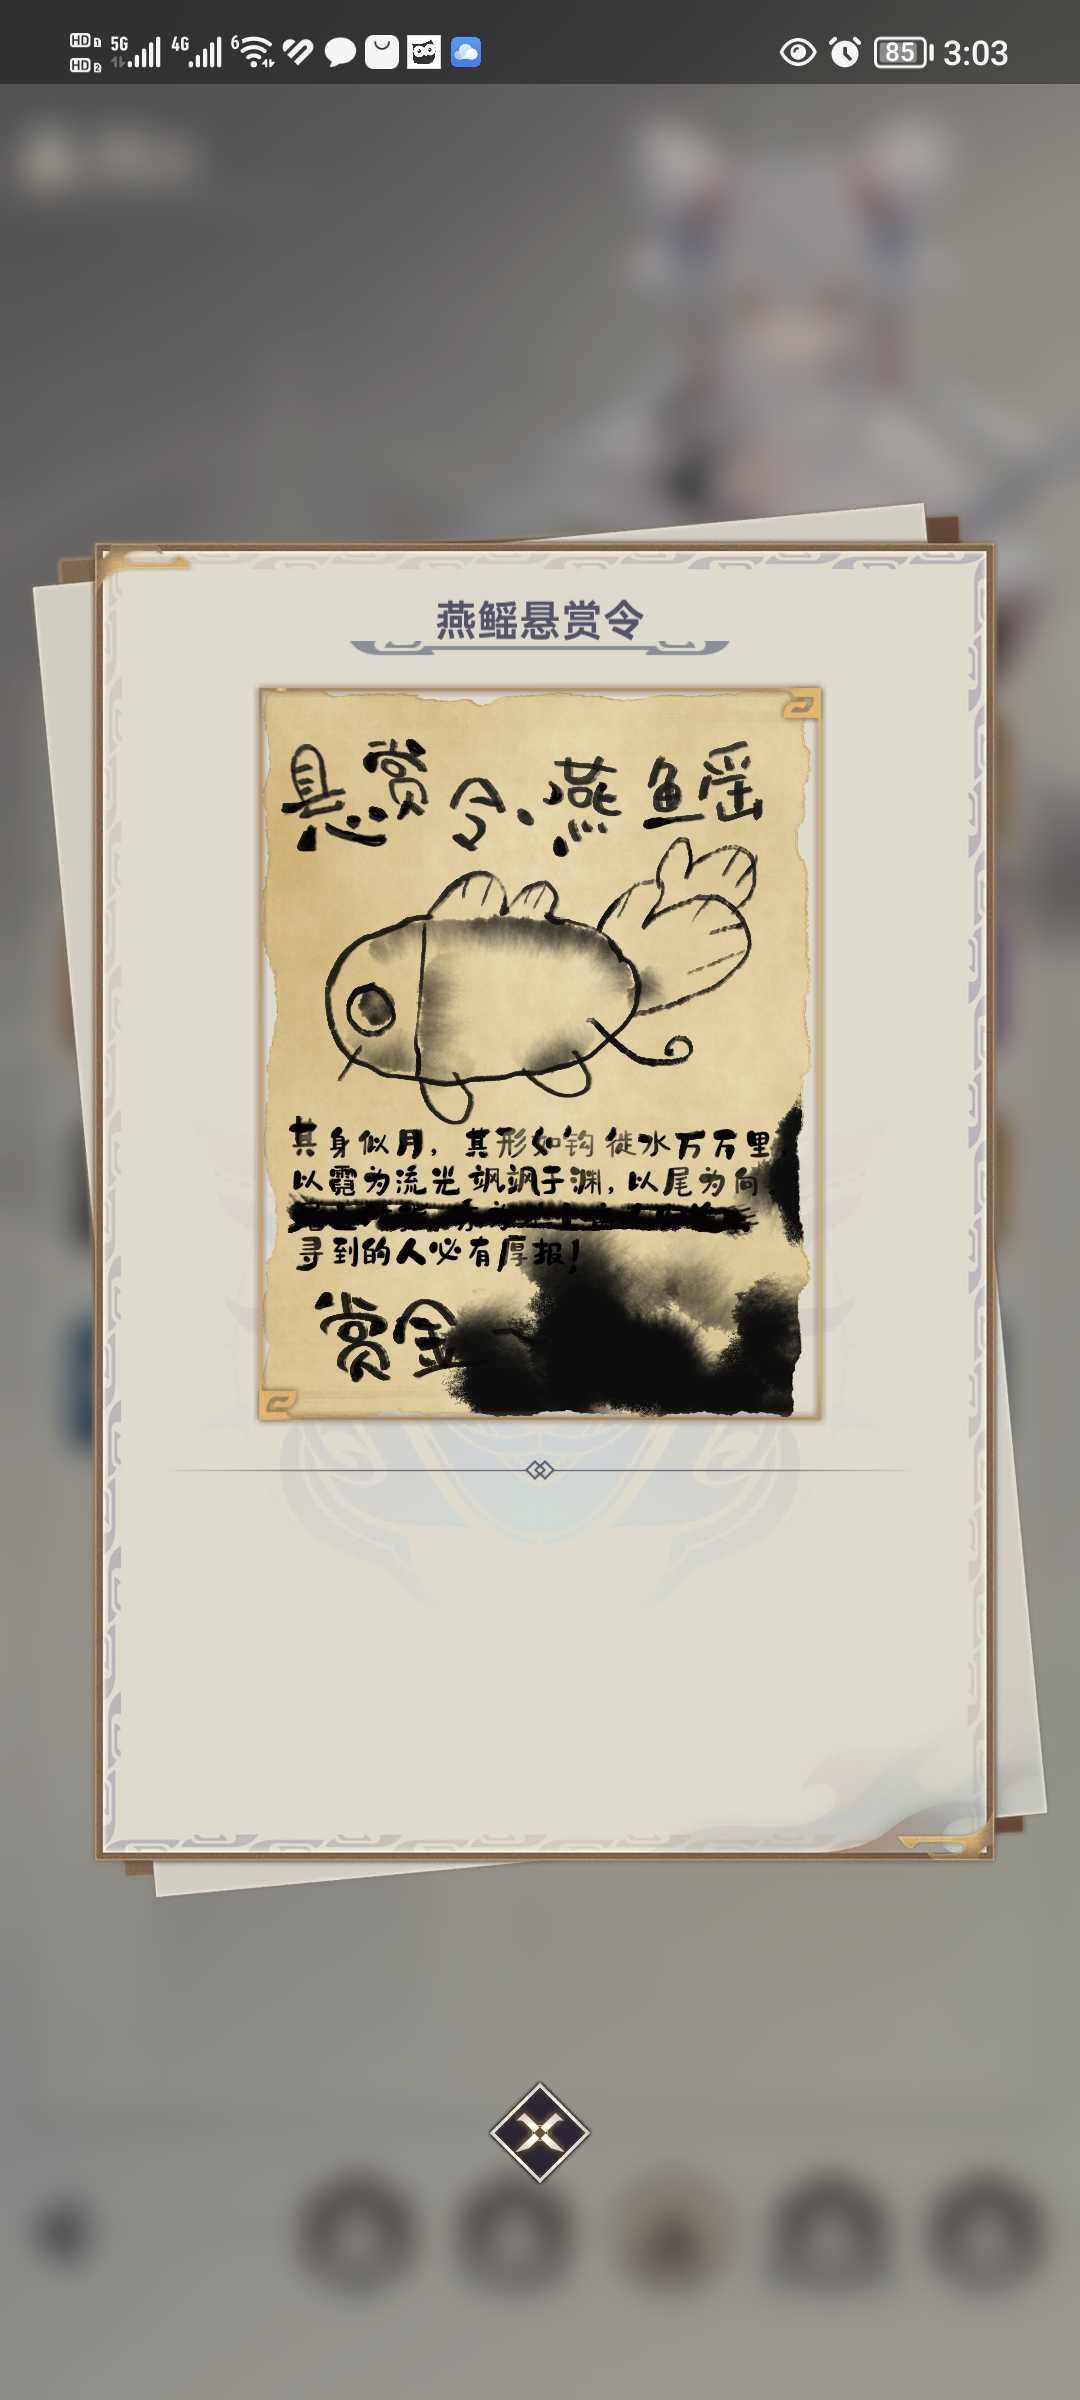 HD 1 5G 4G 6 85 3:03
HD 2
燕鳐悬赏令
悬赏令·燕鳐
其身似月，其形如钩 徙水万万里
以霓为流光 飒飒于渊，以尾为向
寻到的人必有厚报！
赏金